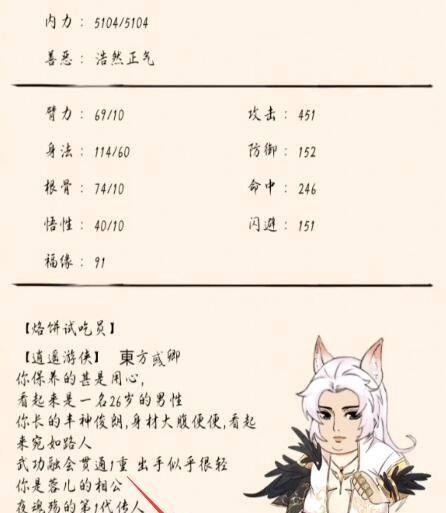 内力： 5104/5104
善恶： 浩然正气
臂力： 69/10 攻击： 451
身法： 114/60 防御： 152
根骨： 74/10 命中： 246
悟性： 40/10 闪避： 151
福缘： 91
【烙饼试吃员】
【逍遥游侠】 東方彧卿
你保养的甚是用心,
看起来是一名26岁的男性
你长的丰神俊朗,身材大腹便便,看起
来宛如路人
武功融会贯通1重 出手似乎很轻
你是蓉儿的相公
夜魂殇的第1代传人